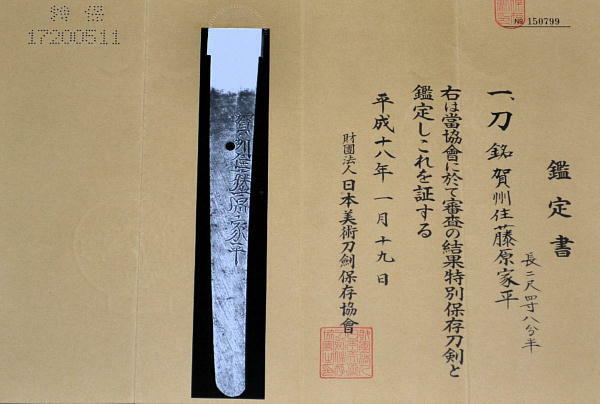 鑑定書
一、刀 銘 賀州住藤原家平
長二尺四寸八分半
右は當協會に於て審査の結果特別保存刀剣と
鑑定しこれを証する
平成十八年一月十九日
財團法人日本美術刀劍保存協會
No 150799
特保
17200511
賀州住藤原家平